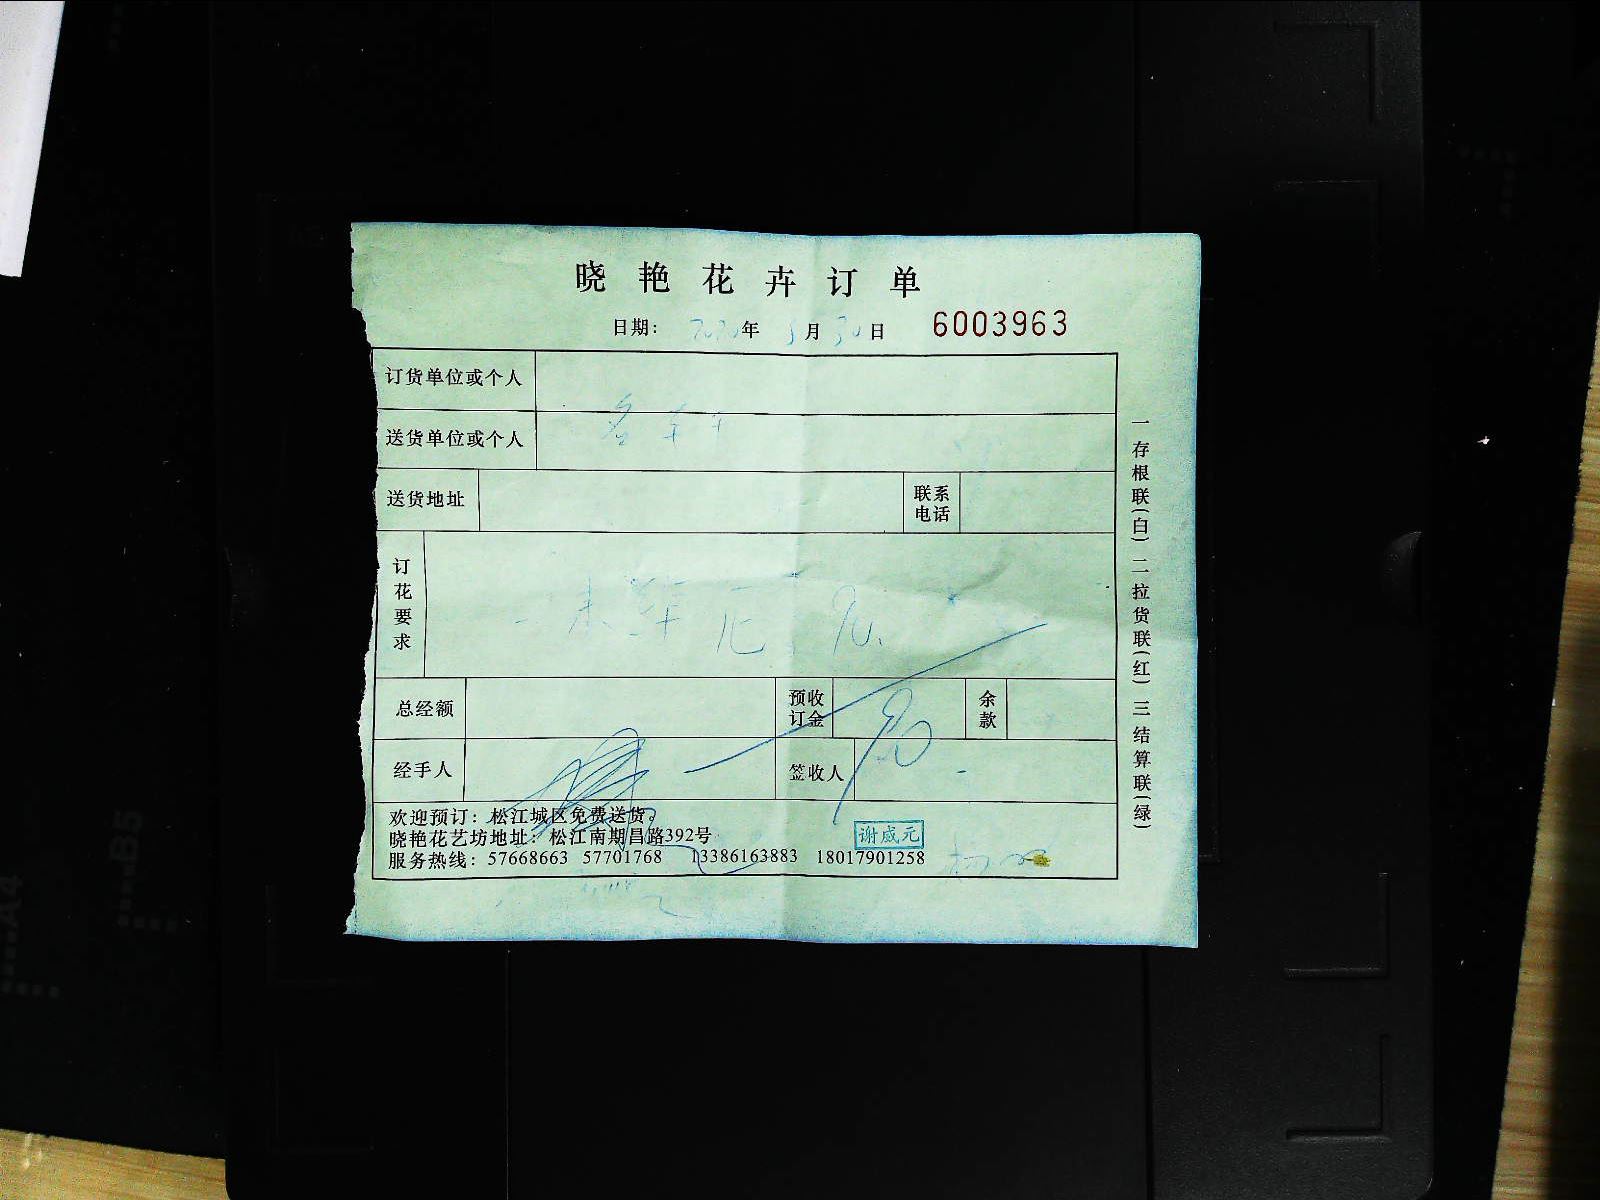 晓艳花卉订单
日期： 2020年 5月30日 6003963
订货单位或个人
送货单位或个人
送货地址 联系电话
订花要求
总经额 预收订金 余款
经手人 签收人
欢迎预订：松江城区免费送货。
晓艳花艺坊地址：松江南期昌路392号
服务热线：57668663 57701768 13386163883 18017901258
谢威元
一存根联(白) 二拉货联(红) 三结算联(绿)